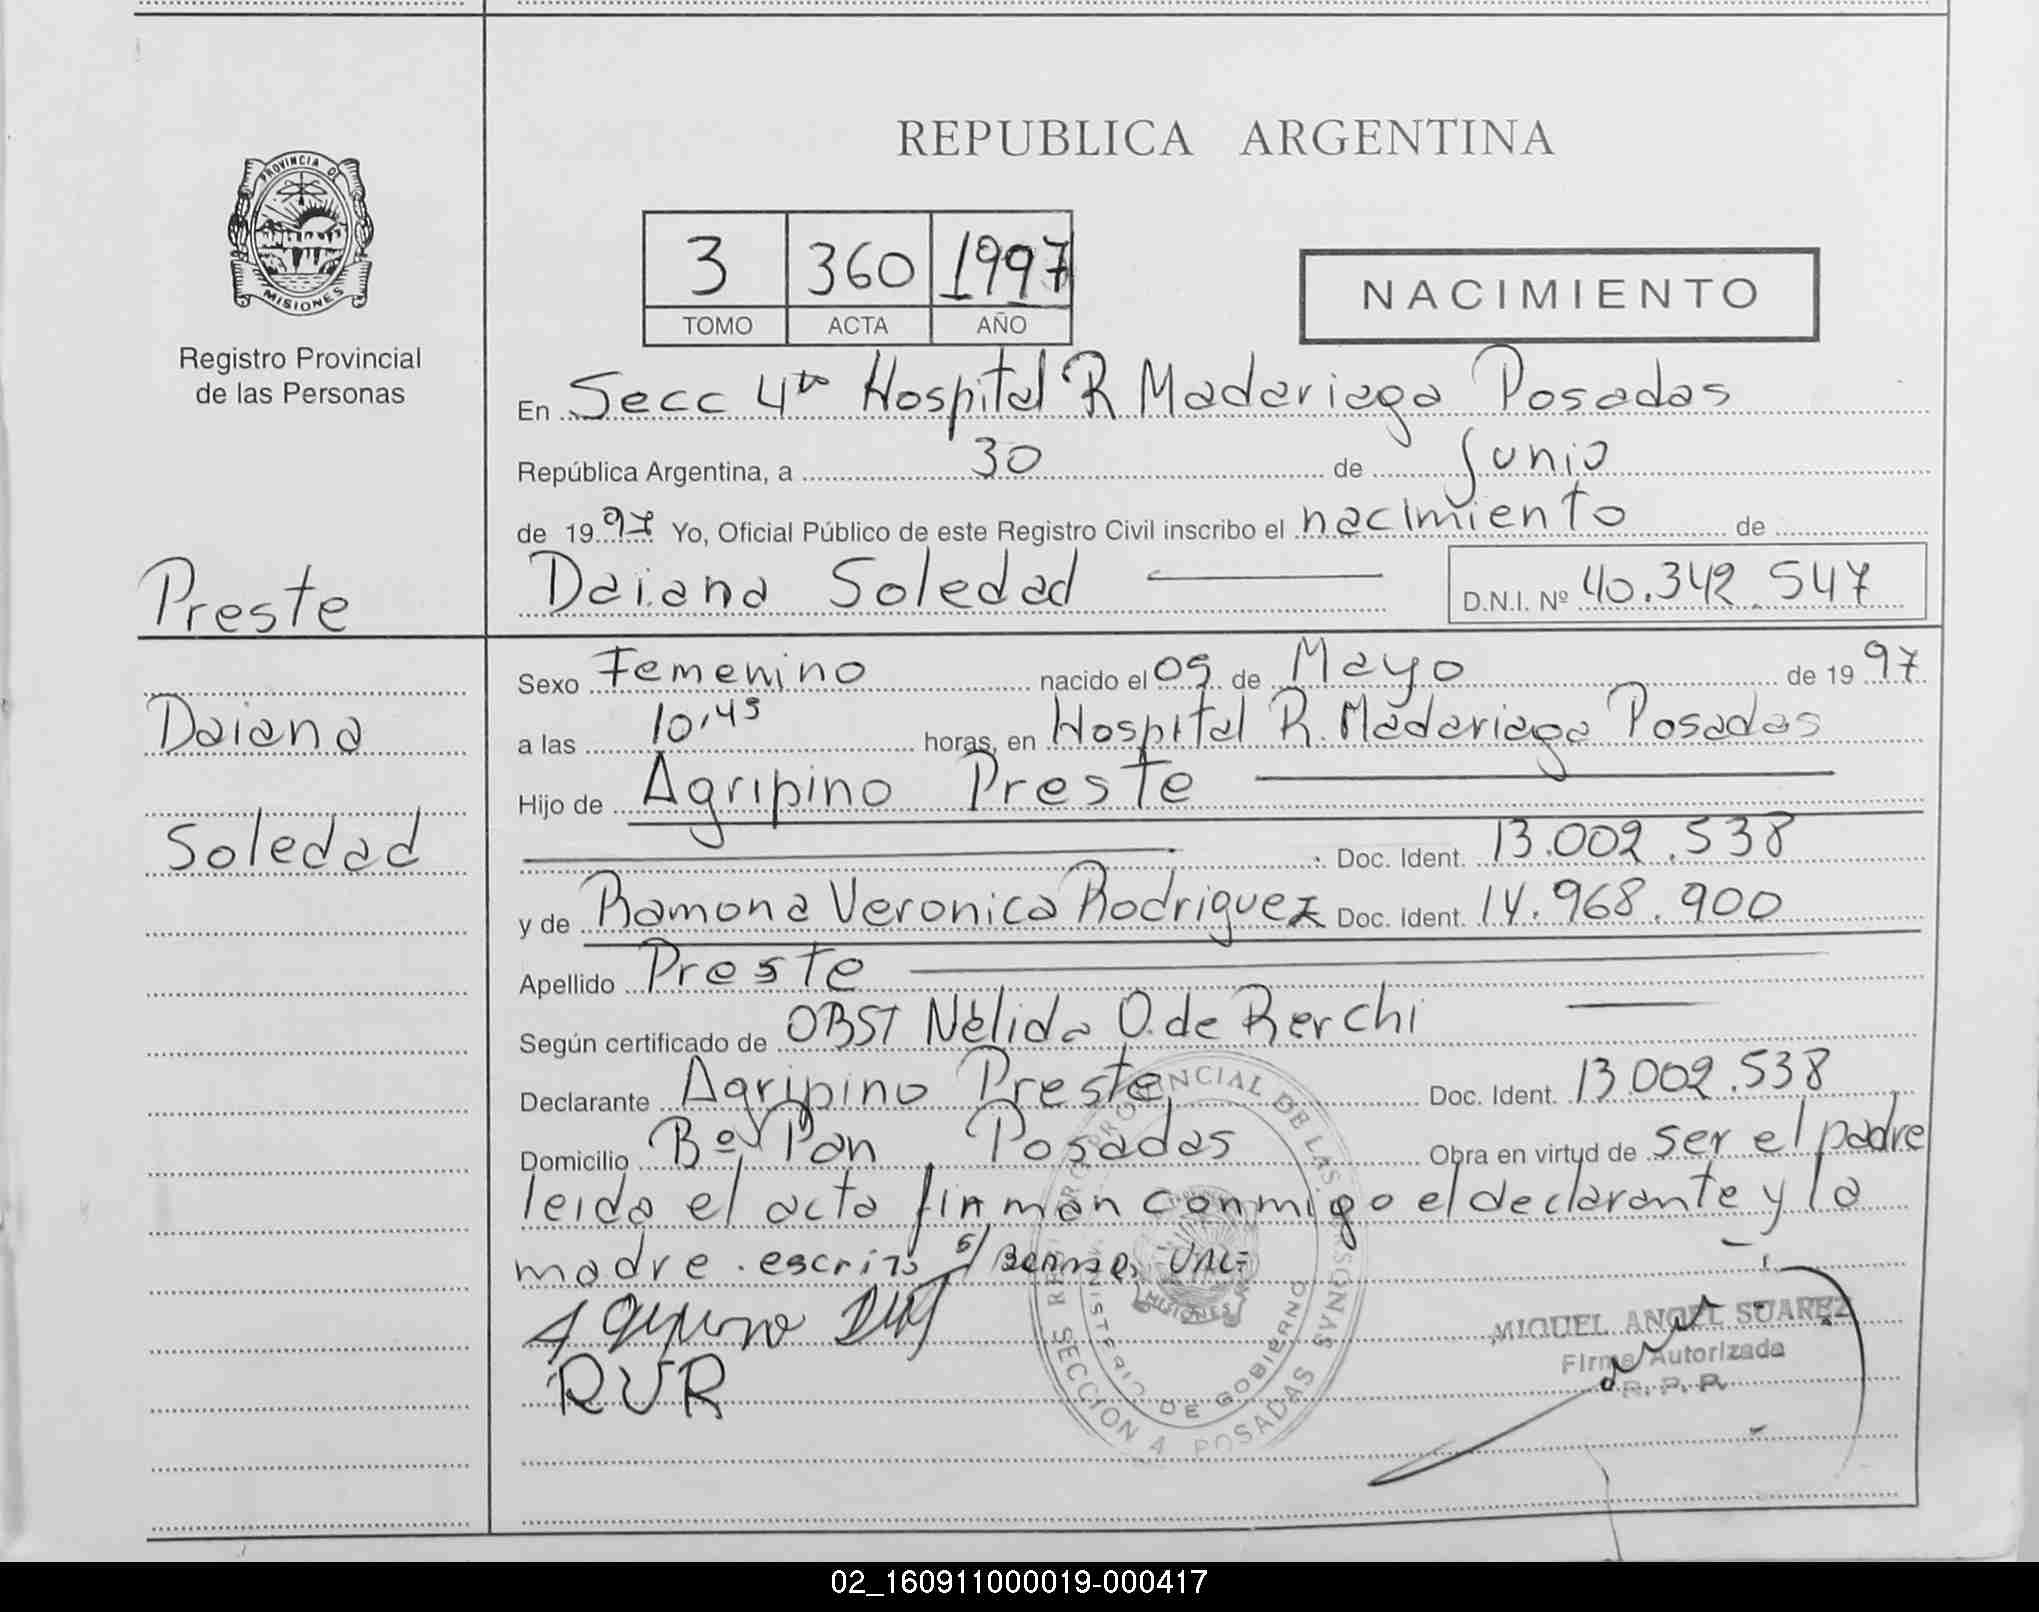 REPUBLICA ARGENTINA
PROVINCIA D
MISIONES
Registro Provincial
de las Personas
3 360 1997
TOMO ACTA AÑO
NACIMIENTO
En Secc 4ta Hospital R Madariaga Posadas
República Argentina, a 30 de Junio
de 1997 Yo, Oficial Público de este Registro Civil inscribo el nacimiento de
Preste
Daiana Soledad D.N.I. Nº 40.342.547
Sexo Femenino nacido el 09 de Mayo de 1997
Daiana
a las 10,45 horas, en Hospital R. Madariaga Posadas
Hijo de Agripino Preste
Soledad
Doc. Ident. 13.002.538
y de Ramona Veronica Rodriguez Doc. Ident. 14.968.900
Apellido Preste
Según certificado de OBST Nélida O. de Berchi
Declarante Agripino Preste Doc. Ident. 13.002.538
Domicilio Bº Pan, Posadas Obra en virtud de ser el padre
leida el acta firman conmigo el declarante y la
madre. escrito s/
RVR
REG. PROVINCIAL DE LAS PERSONAS
MINISTERIO DE GOBIERNO
SECCION 4 POSADAS
MISIONES
MIGUEL ANGEL SUAREZ
Firma Autorizada
R. P. P.
02_160911000019-000417